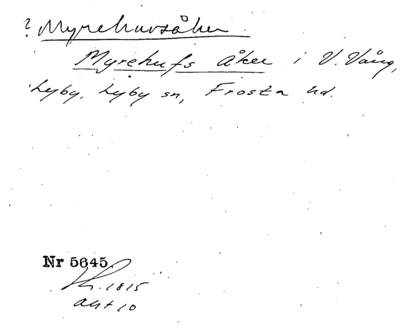 ? Myrehuvsåker
Myrehufs åker i V. Vång,
Lyby. Lyby sn, Frosta hd.
Nr 5645.
1815
akt 10